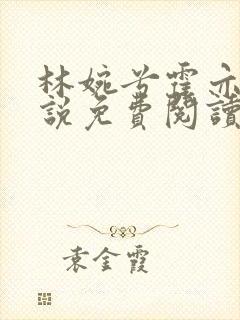 林婉兮霍亦
說免費閱讀
袁金霞